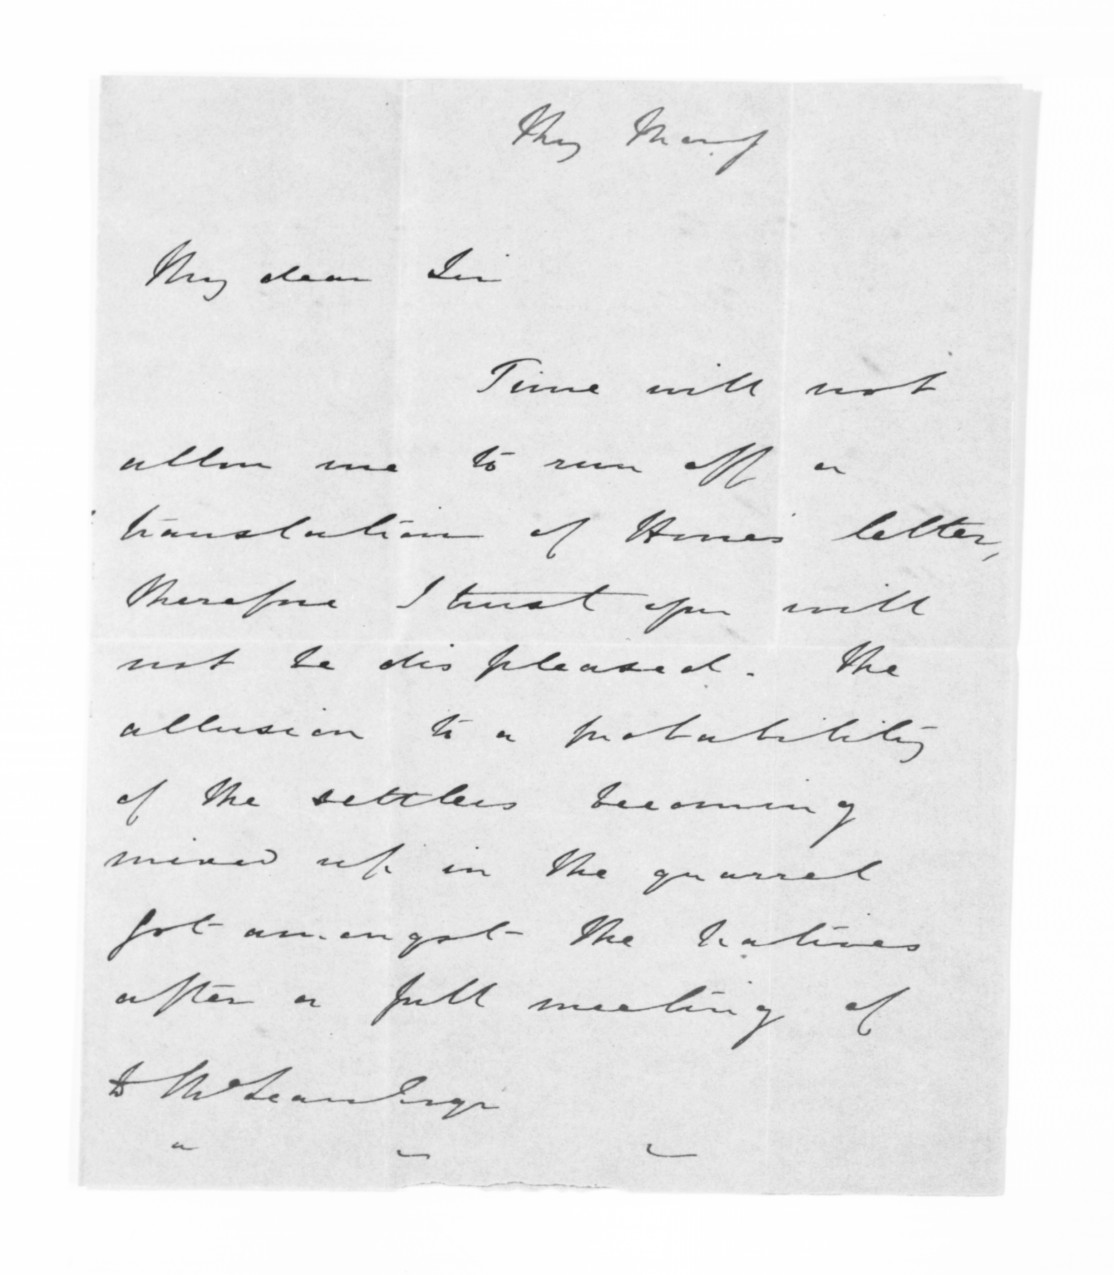 My dear Sir
Time will not
allow me to run off a
translation of letter,
therefore I trust you will
not be displeased. The
allusion to a probability
of the settlers becoming
mixed up in the quarrel
got amongst the natives
after a full meeting of
D McLean Esqr
" " "